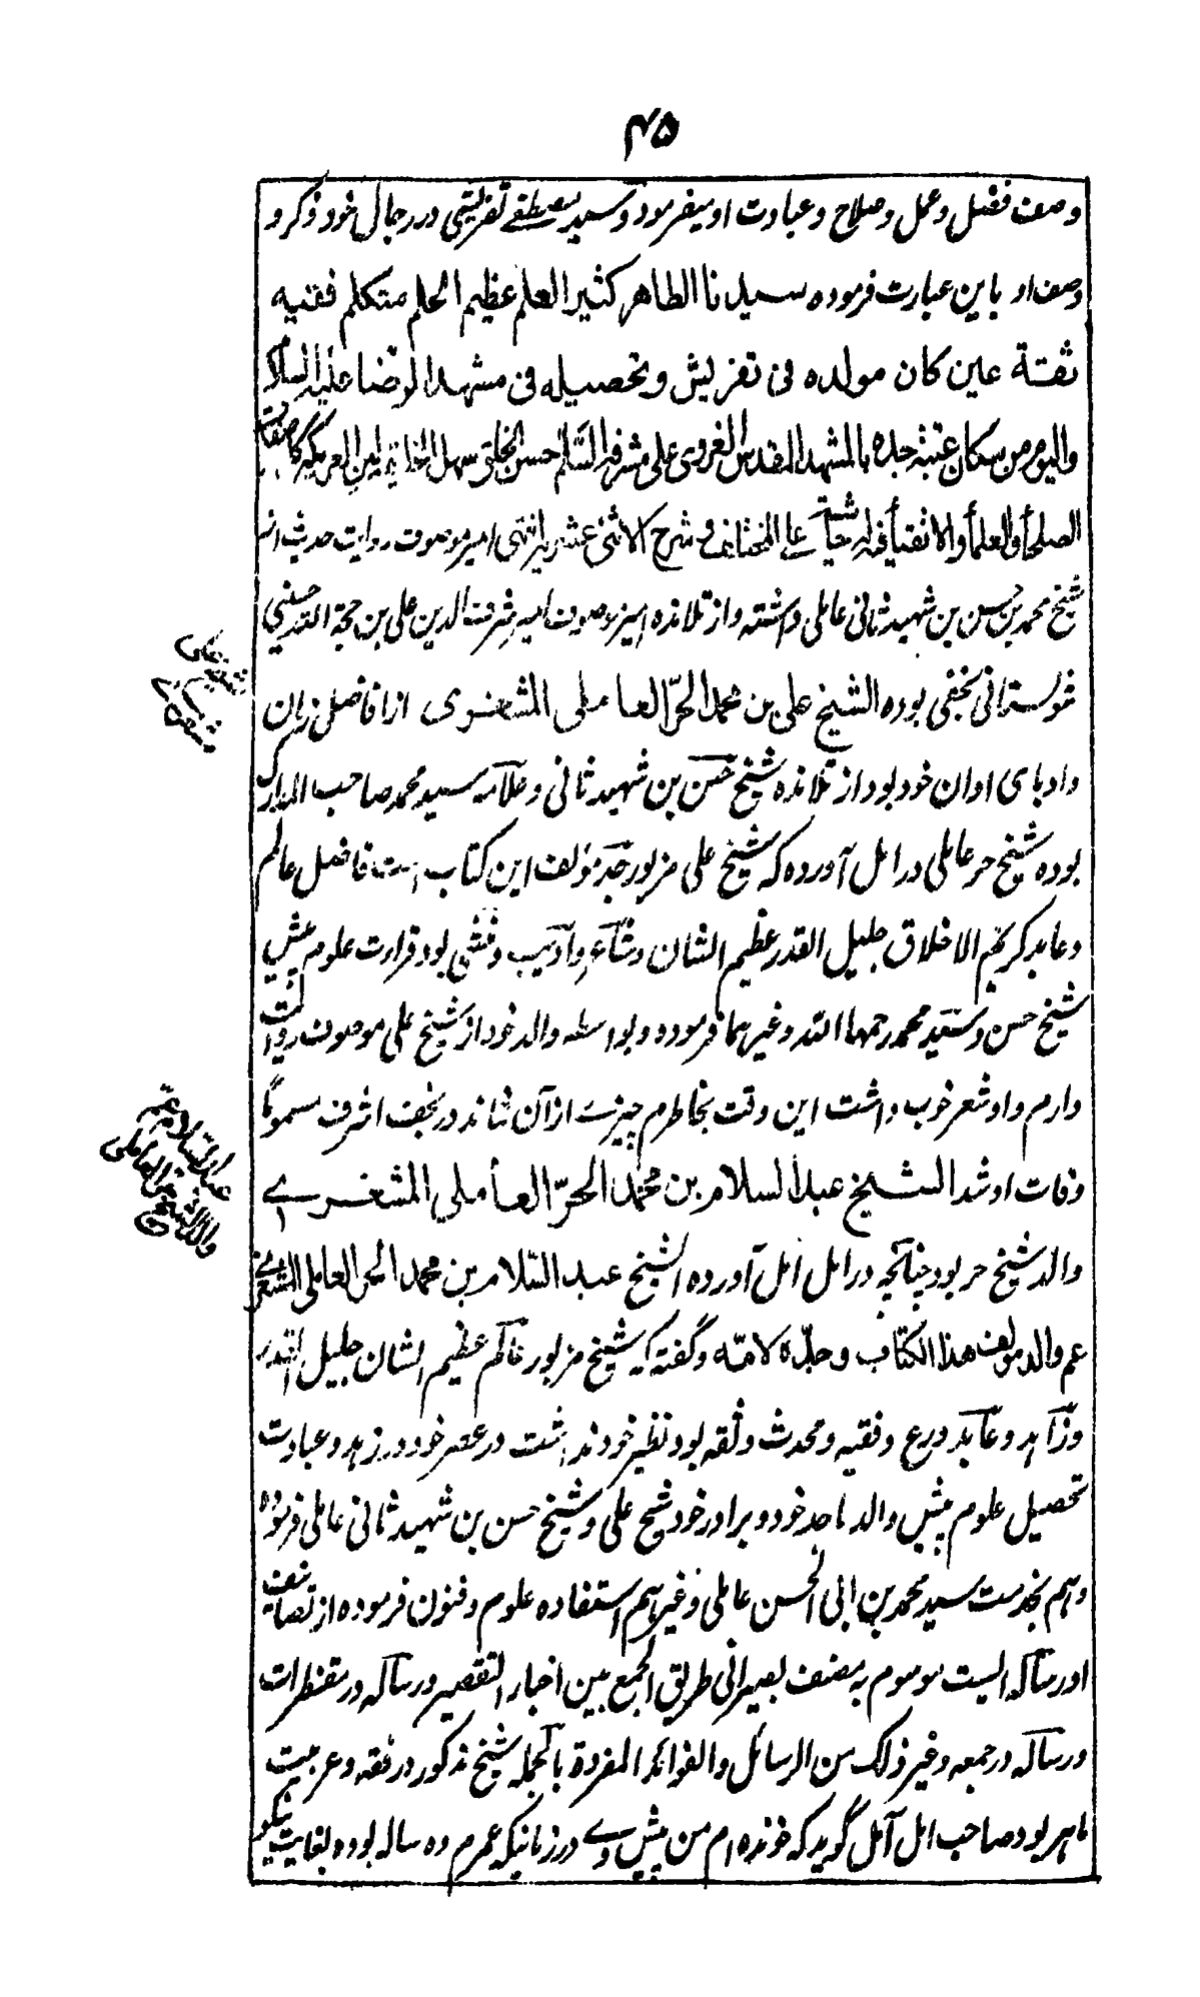 ۴۵
وصف فضل و عمل و صلاح و عبادت او میفرمود و سید مصطفے تفریشی در رجال خود ذکر و
وصف او باین عبارت فرموده سیدنا الطاهر کثیر العلم عظیم الحلم متکلم فقیه
ثقة عین کان مولده فی تفریش و تحصیله فی مشهد الرضا علیه السلام
والیوم من سکان عتبة جده بالمشهد المقدس الغروی علی مشرفه السّلم حسن الخلق سهل الخلیقة لین العریکة کل صفات
الصلحأ والعلمأ والاتقیأ فیه له حاشیة علی المختلف و شرح الاثنی عشریه انتهی امیر موصوف روایت حدیث از
شیخ محمد بن حسن بن شهید ثانی عاملی داشته و از تلامذه امیر موصوف امیر شرف الدین علی بن حجة الله حسینی
شولستانی نجفی بوده الشیخ علی بن محمد الحرّ العاملی المشغری از افاضل زمان
و ادبای اوان خود بود از تلامذه شیخ حسن بن شهید ثانی و علامه سید محمد صاحب المدارک
بوده شیخ حر عاملی در امل آورده که شیخ علی مزبور جد مؤلف این کتاب است فاضل عالم
و عابد کریم الاخلاق جلیل القدر عظیم الشان و شاعر و ادیب و منشی بود قرارت علوم پیش
شیخ حسن و سید محمد رحمهما الله و غیرهما فرموده و بواسطه والد خود از شیخ علی موصوف روایت
دارم و او شعر خوب داشت این وقت بخاطرم چیزے ازآن نماند در نجف اشرف مسموماً
وفات او شد الشیخ عبد السلام بن محمد الحرّ العاملی المشغرے
والد شیخ حر بود چنانچه در امل آمل آورده الشیخ عبد السّلام بن محمد الحر العاملی المشغری
عم والد مولف هذا الکتاب و جدّه لامّه و گفته که شیخ مزبور عالم عظیم الشان جلیل القدر
و زاهد و عابد و ورع و فقیه و محدث و ثقه بود نظیر خود نداشت در عصر خود در زهد و عبادت
تحصیل علوم پیش والد ماجد خود و برادر خود شیخ علی و شیخ حسن بن شهید ثانی عاملی فرموده
و هم بخدمت سید محمد بن ابی الحسن عاملی و غیرهم استفاده علوم و فنون فرموده از تصانیف
او رساله ایست موسوم به مصنف بصیرانی طریق الجمع بین اخبار التقصیر و رساله در مفطرات
و رساله در جمعه و غیر ذلک من الرسائل والفوائد المفردة بالجمله شیخ مذکور در فقه و عربیت
ماهر بود صاحب امل آمل گوید که خوانده ام من پیش وے در زمانیکه عمرم ده ساله بود و بغایت نیکو
شیخ علی
عبد السلام بن محمد
الحر العاملی
والد شیخ حر